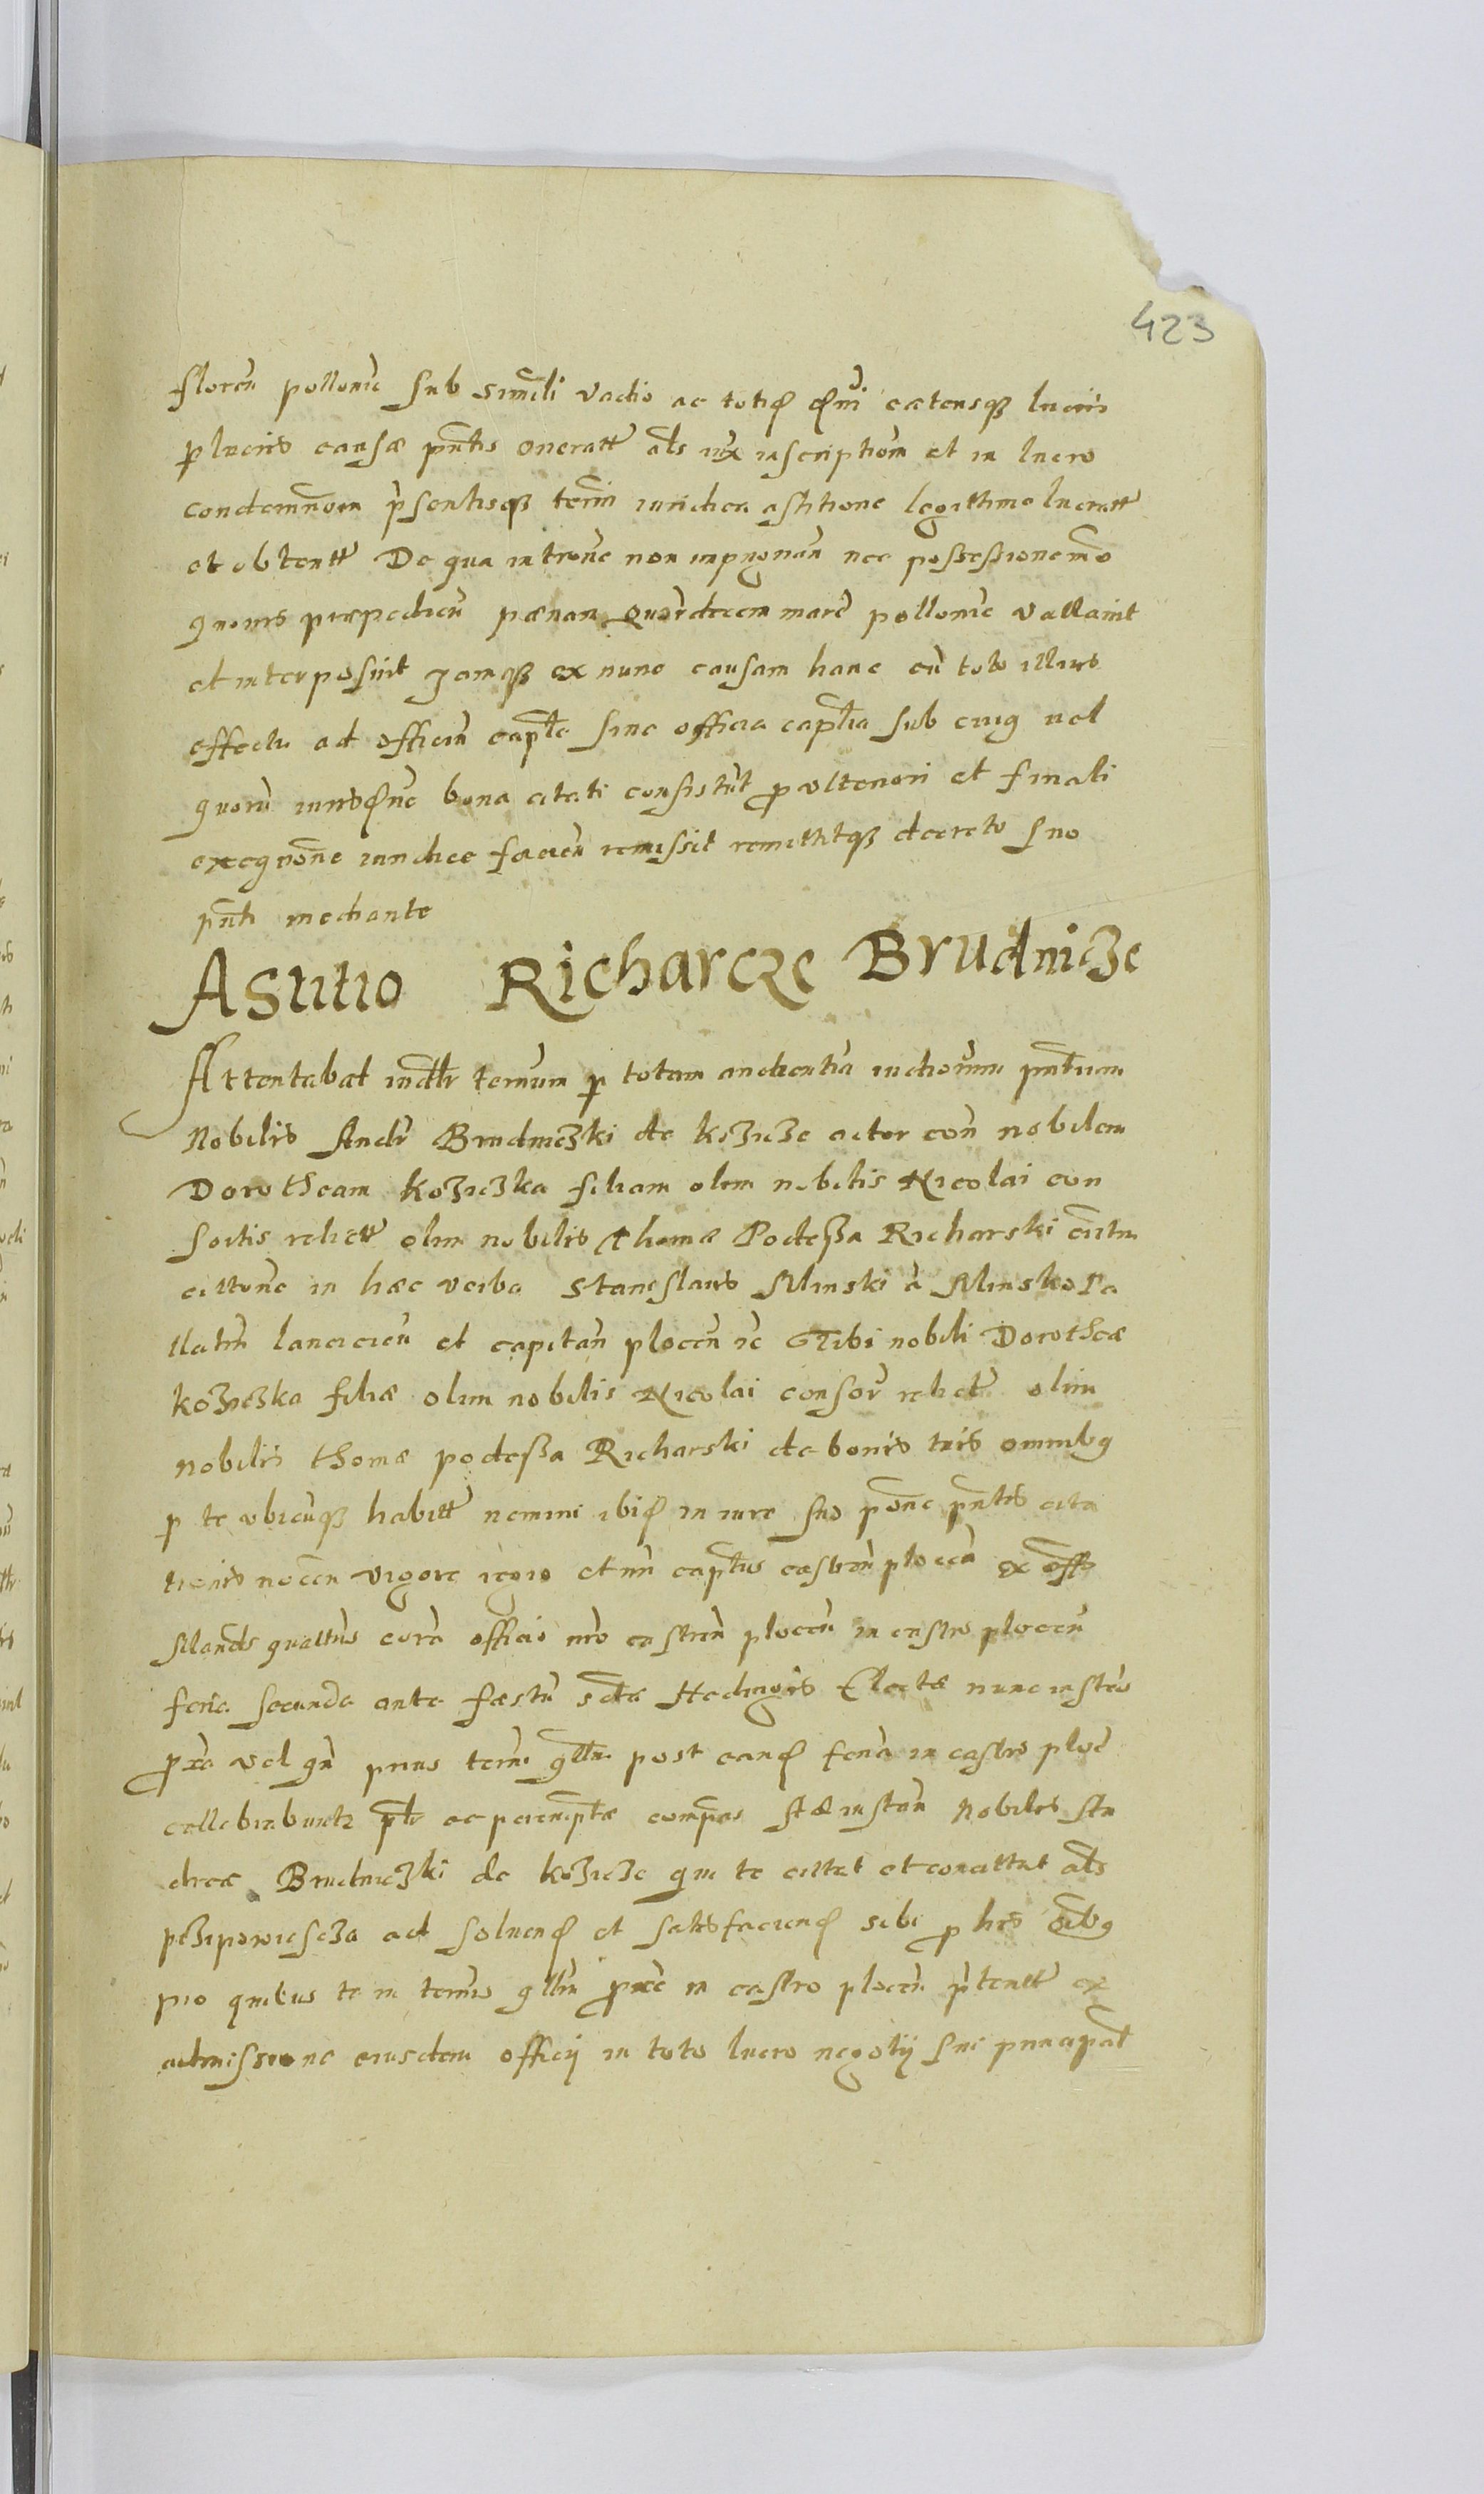 423
floren pollonic sub simili vadio ac totid damni eatensq lucris
p lucris causæ pntis oneratt als iux inscription et in lucro
condemnom psentisq termi iuridica astitione legittime lucratt
et obtentt De qua introne non impugnan nec possessionem
quovis præpedien pænam quatrdecem marc pollonic vallavit
et interposuit Jamq ex nunc causam hanc cu toto illius
effectu ad officiu captle sive officia captlia sub cuig vel
quorum iurisdne bona citati consistut p ulteriori et finali
exequone iuridice facien remissit remittitq decreto suo
pnti mediante
Astitio Richarcze Brudnicze
Attentabat indtr termum p totam audientia iudiciorum pntium
Nobilis Andr Brudniczki de Kozicze actor con nobilem
Dorotheam Koziczka filiam olim nobilis Nicolai con
sortis relictt olim nobilis Thomæ Podessa Richarski
cittone in hæc verba Stanislaus Minski a Minsko Pa
llatin lancicien et capitan plocen ic Tibi nobili Dorotheæ
Koziczka filiæ olim nobilis Nicolai consor relictt olim
nobilis Thomæ podessa Richarski de bonis tuis omnibg
p te ubicuq habitt nemini ibid in iure suo pone pntis cita
tionis nocen vigore regio et nri captlis castren plocen ex offo
Mands quattus cora officio nro castren plocen in castro plocen
feria secunda ante fæstu sctæ Hedvigis Electæ nunc instan
pxa vel qn prius termi qllm post eand feria in castro ploc
cellebrabuntr psltr ac peremptæ compas Ad instan Nobilis An
dreæ Brudniczki de Kozicze qui te cittat et concittat als
przipowiescza ad solvend et satisfaciend sibi p his oibg
pro quibus te in termis qllm pxæ in castro plocen ptenditt ex
admissione eiusdem officij in toto lucro negotij sui principal